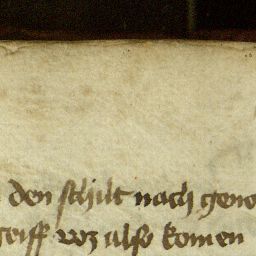 den schilt nach geno
greiff vor also komen